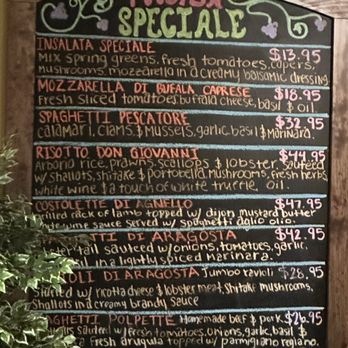 SPECIALE
INSALATA SPECIALE $13.95
Mix spring greens, fresh tomatoes, capers,
mushrooms, mozzarella in a creamy balsamic dressing
MOZZARELLA DI BUFALA CAPRESE $16.95
Fresh sliced tomatoes, buffala cheese, basil & oil
SPAGHETTI PESCATORE $32.95
calamari, clams, & mussels, garlic, basil & marinara
RISOTTO DON GIOVANNI $44.95
Arborio rice, prawns, scallops & lobster, sauteed
w/ shallots, shitake & portobella, mushrooms, fresh herbs
white wine & a touch of white truffle oil.
COSTOLETTE DI AGNELLO $47.95
Grilled rack of lamb topped w/ dijon mustard butter
wine sauce served w/ spaghetti aglio olio.
DI ARAGOSTA $42.95
tail sauteed w/ onions, tomatoes, garlic,
in a lightly spiced marinara.
DI ARAGOSTA Jumbo ravioli $28.95
stuffed w/ ricotta cheese & lobster meat, shitake mushrooms,
shallots in a creamy brandy sauce
POLPETTE Homemade beef & pork $26.95
sauteed w/ fresh tomatoes, onions, garlic, basil &
a fresh arugula topped w/ parmigiano regiano.